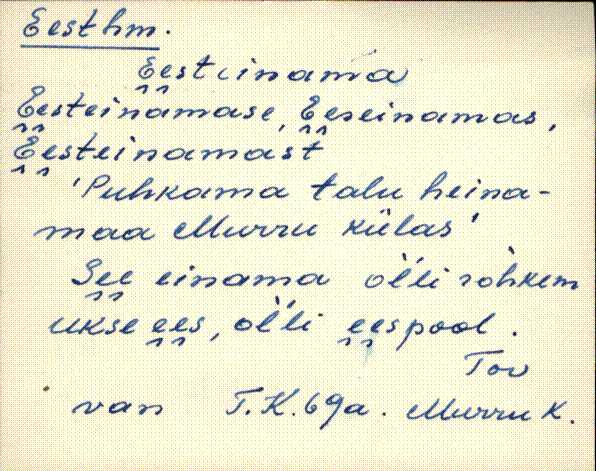 Eesthm.
Eesteinama
Eesteinamase, Eeseinamas,
Eesteinamast
'Puhkama talu heina-
maa Murru külas'
See einama ol'li rohkem
ukse ees, ol'li eespool.
Tov
van T.K. 69a. Murru k.